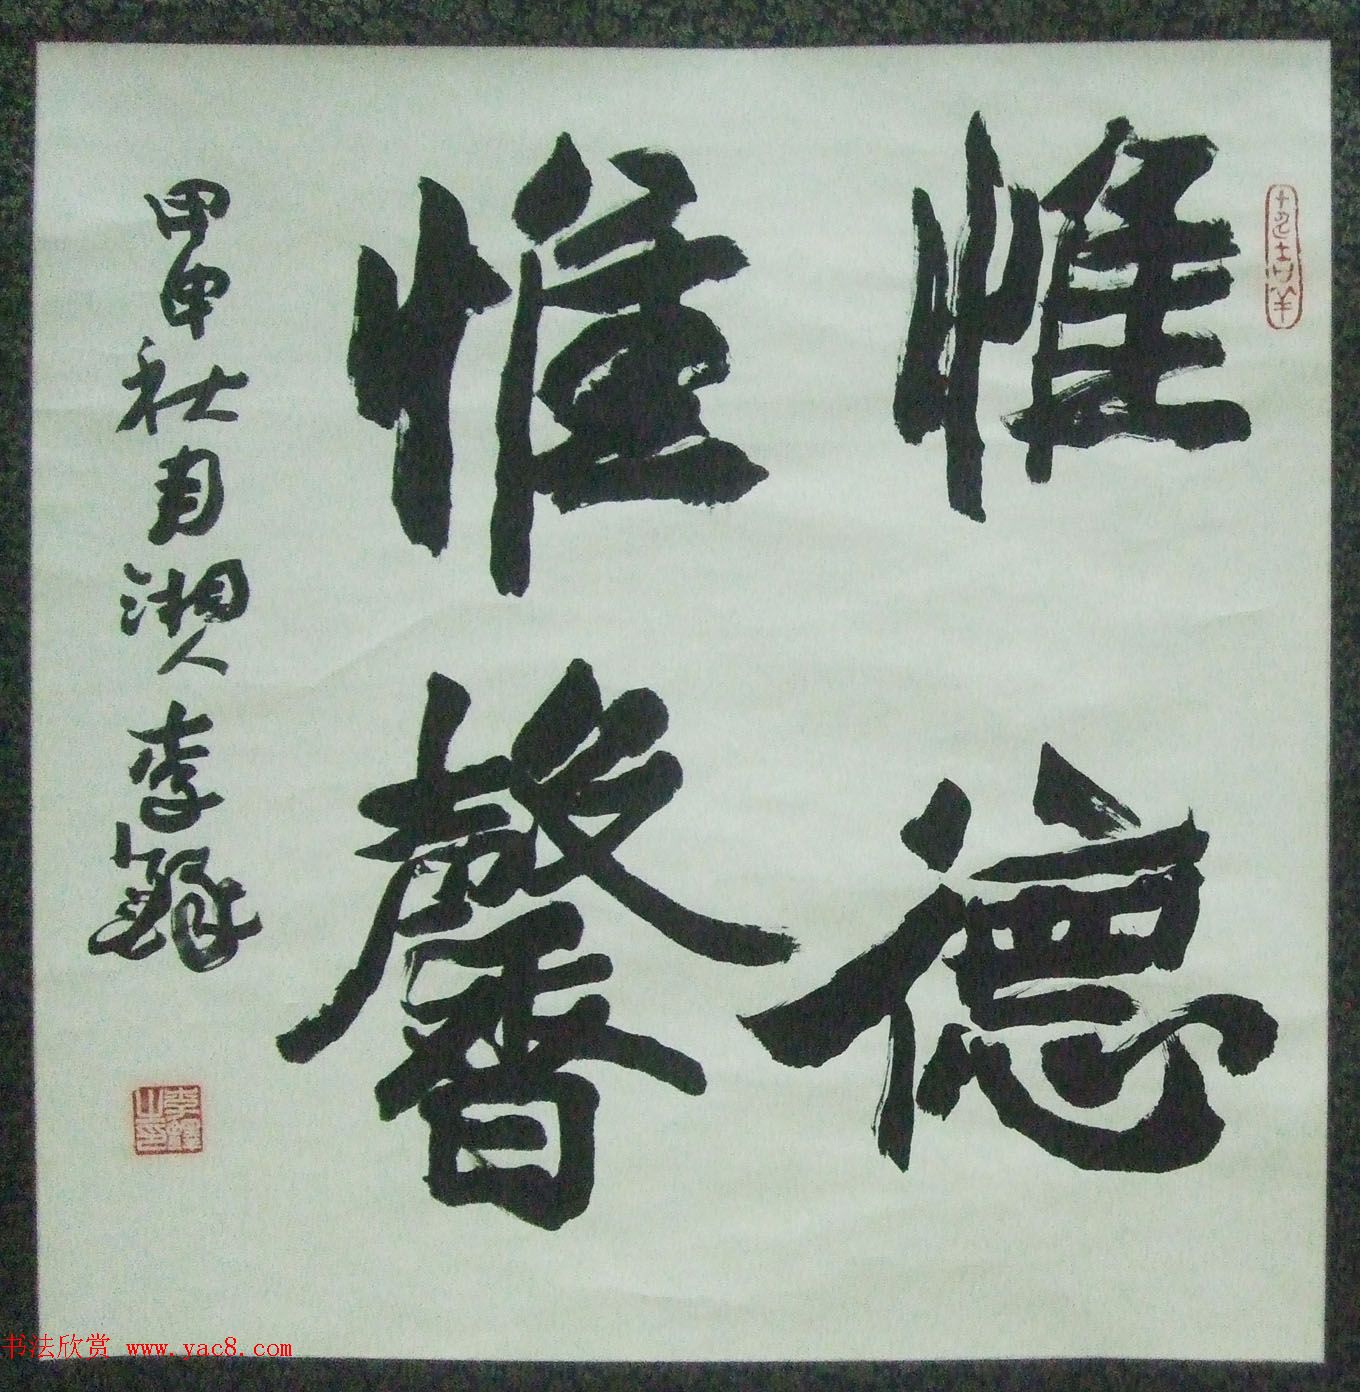 惟德
惟馨
甲申秋月湘人李鐸
书法欣赏 www.yac8.com